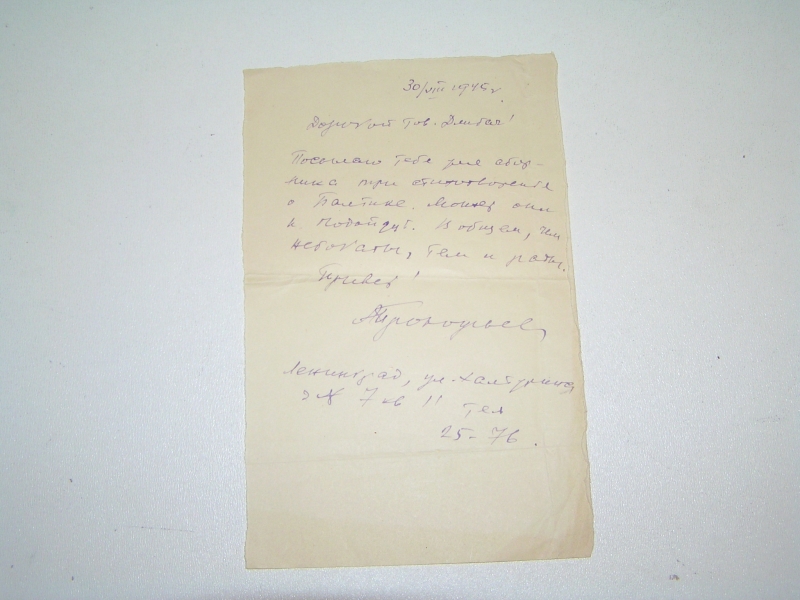 30/VIII 1945 г.
Дорогой тов.
Посылаю тебе для сбор-
ника три стихотворения
о Балтике. Может они
и подойдут. В общем, чем
небогаты, тем и рады.
Привет!
АПрокофьев
Ленинград, ул. Халтурина
д № 7 кв 11 Тел
25-76.